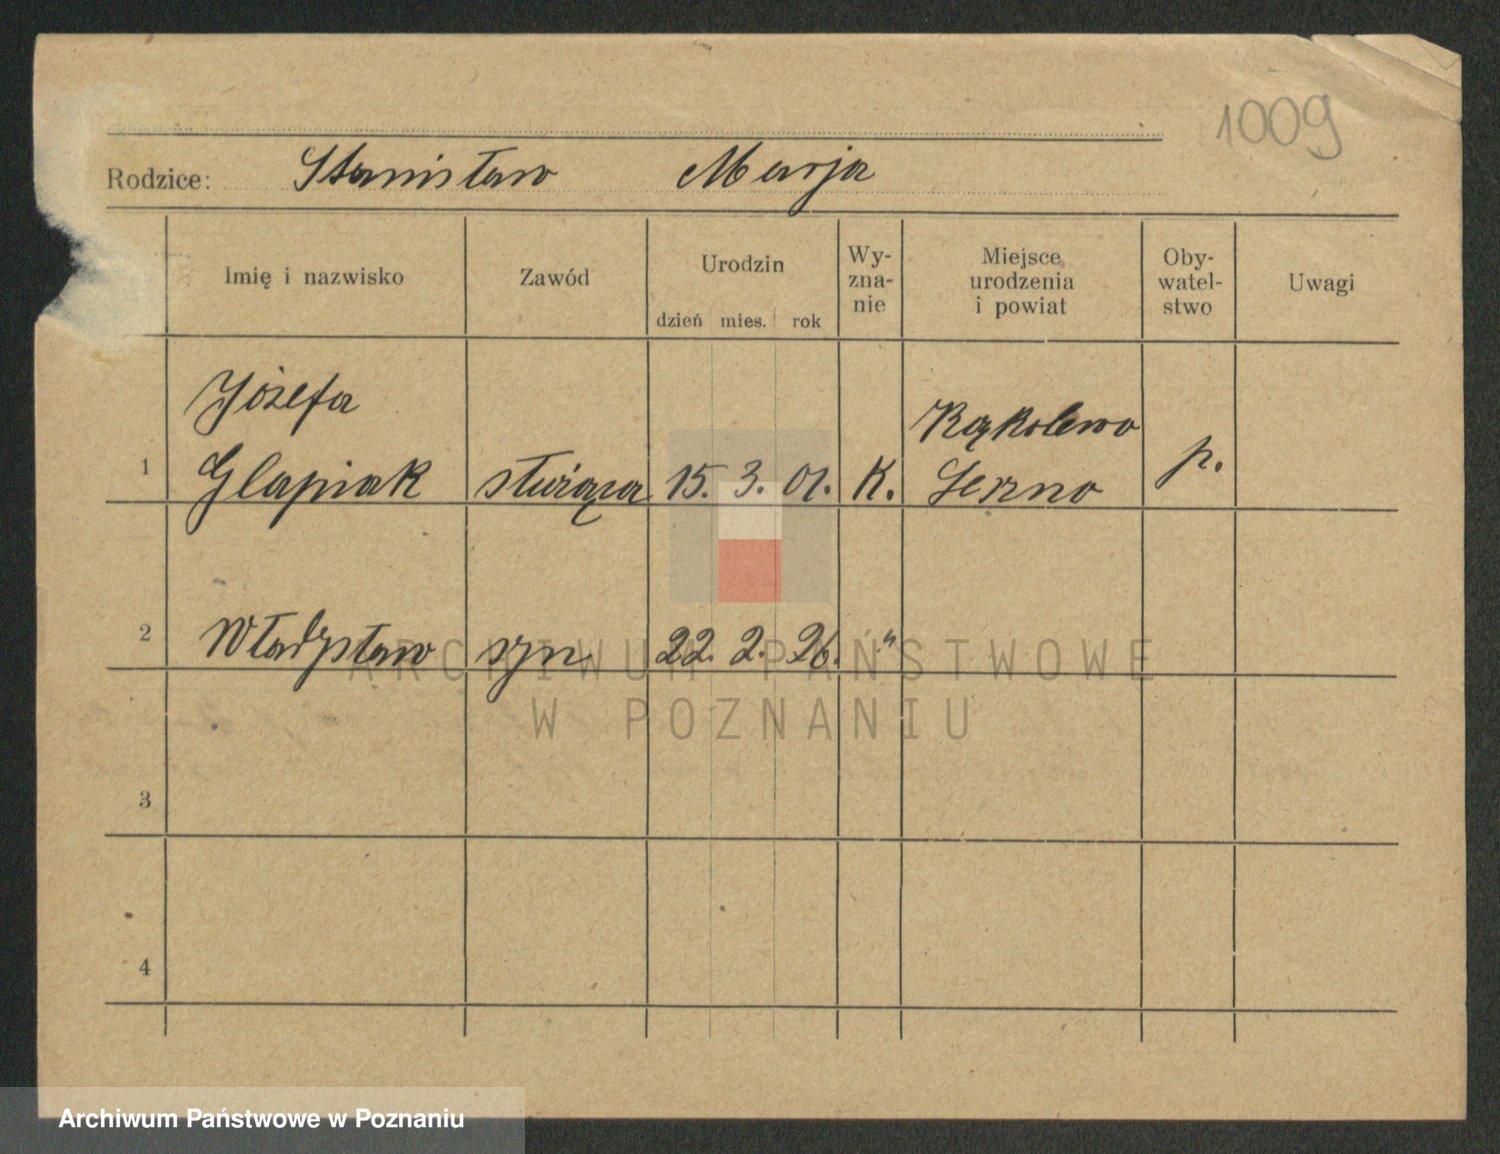 1009
Rodzice: Stanisław Marja
Imię i nazwisko Zawód Urodzin dzień mies. rok Wy-zna-nie Miejsce urodzenia i powiat Oby-watel-stwo Uwagi
Józefa
1 Glapiak służąca 15. 3. 01. K. Rąkolewo p.
2 Władysław syn 22. 2. 26. "
3
4
ARCHIWUM PAŃSTWOWE
W POZNANIU
Archiwum Państwowe w Poznaniu